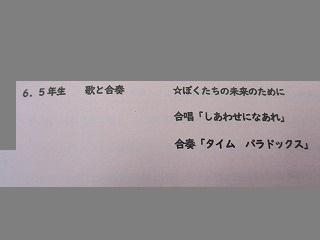 6．5年生　歌と合奏　☆ぼくたちの未来のために
合唱「しあわせになあれ」
合奏「タイム　パラドックス」